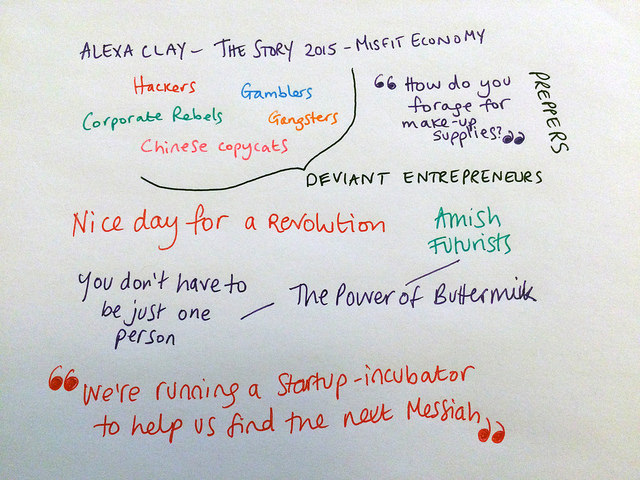 ALEXA CLAY - THE STORY 2015 - MISFIT ECONOMY
Hackers
Gamblers
Corporate Rebels
Gangsters
Chinese copycats
“How do you
forage for
make-up
supplies?”
PREPPERS
DEVIANT ENTREPRENEURS
Nice day for a REVOLUTION
Amish
Futurists
You don't have to
be just one
person
The Power of Buttermilk
“We're running a startup-incubator
to help us find the next Messiah”